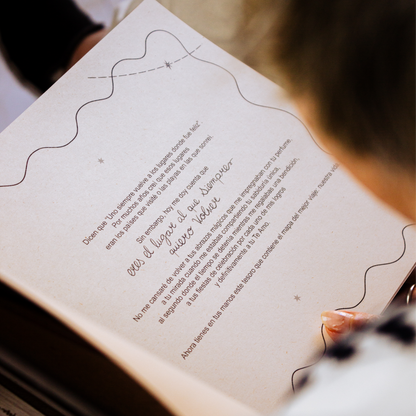 Dicen que "Uno siempre vuelve a los lugares donde fue feliz"
Por muchos años creí que esos lugares
eran los países que visité o las playas en las que sonreí.
Sin embargo, hoy me doy cuenta que
eres el lugar al que siempre
quiero volver
No me cansaré de volver a tus abrazos mágicos que me impregnaban con tu perfume,
a tu mirada cuando me estabas compartiendo tu sabiduría única,
al segundo donde el tiempo se detenía mientras me regalabas una bendición,
a tus fiestas de celebración por cada uno de mis logros
y definitivamente a tu Te Amo.
Ahora tienes en tus manos este tesoro que contiene el mapa del mejor viaje, nuestra